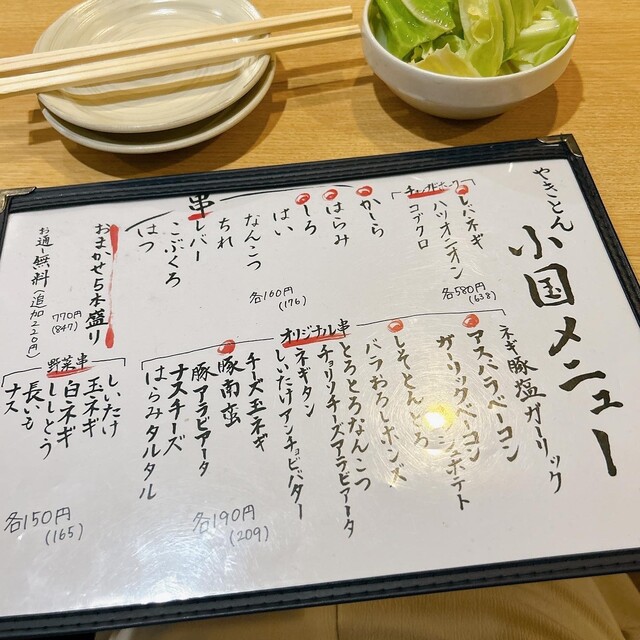 やきとん
小国メニュー
チャンドポーク
レバネギ
ハツオニオン
コブクロ
各580円
(638)
串
かしら
はらみ
しろ
はい
なんこつ
ちれ
レバー
こぶくろ
はつ
各160円
(176)
おまかせ5本盛り
770円
(847)
お通し無料 追加220円)
ネギ豚塩ガーリック
アスパラベーコン
ガーリックベーコン
しそとんとろ
バラおろしポンズ
とろとろなんこつ
オリジナル串
チョリソチーズアラビアータ
ネギタン
しいたけアンチョビバター
チーズ玉ネギ
豚南蛮
豚アラビアータ
ナスチーズ
はらみタルタル
各190円
(209)
野菜串
しいたけ
玉ネギ
白ネギ
ししとう
長いも
ナス
各150円
(165)